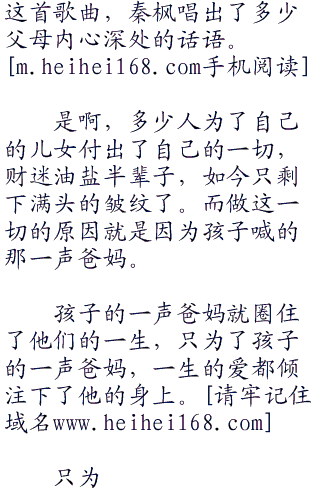 这首歌曲，秦枫唱出了多少
父母内心深处的话语。
[m.heihei168.com手机阅读]
是啊，多少人为了自己
的儿女付出了自己的一切，
财迷油盐半辈子，如今只剩
下满头的皱纹了。而做这一
切的原因就是因为孩子喊的
那一声爸妈。
孩子的一声爸妈就圈住
了他们的一生，只为了孩子
的一声爸妈，一生的爱都倾
注下了他的身上。[请牢记住
域名www.heihei168.com]
只为